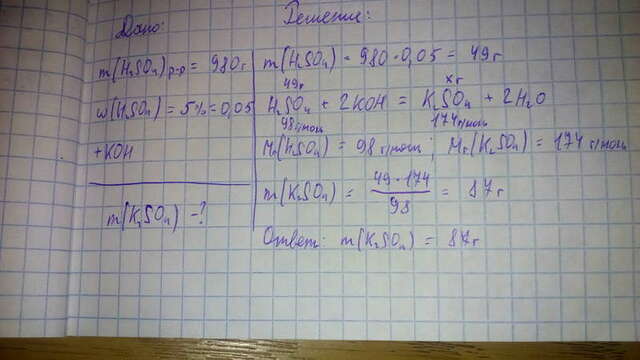 Дано:
m(H₂SO₄)р-р = 980г
w(H₂SO₄) = 5% = 0,05
+KOH
m(K₂SO₄) - ?
Решение:
m(H₂SO₄) = 980 · 0,05 = 49г
49г xг
H₂SO₄ + 2KOH = K₂SO₄ + 2H₂O
98г/моль 174г/моль
Mr(H₂SO₄) = 98 г/моль ; Mr(K₂SO₄) = 174 г/моль
m(K₂SO₄) = 49 · 174 / 98 = 87г
Ответ: m(K₂SO₄) = 87г